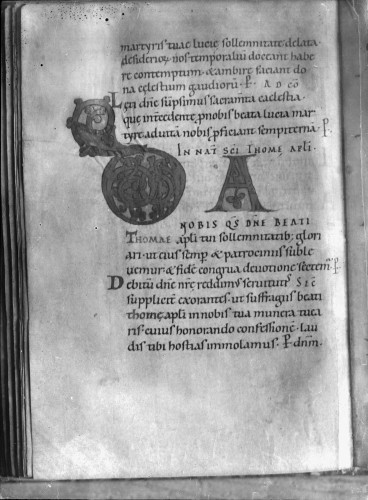 martyris tuae lucie sollemnitate delata
desiderio; nos temporaliũ doceant habe
re contemptum · & ambire faciant do
na cęlestium gaudiorũ · P · AD CÕ
Lẹti dñe sũpsimus sacramta caelestia ·
que intercedente pro nobis beata lucia mar
tyre ad uitã nobis pficiant sempiternã · P
IN NAT SCI THOME APLI ·
DA
NOBIS QS DÑE BEATI
THOMAE apli tui sollemnitatib; glori
ari · ut eius semp & patrociniis suble
uemur & fidẽ congrua deuotione sectem ·
Debitũ dñe nrẹ reddimus seruitutis SEC
suppliciter exorantes · ut suffragiis beati
thomę apli in nobis tua munera tuea
ris · cuius honorando confessionẽ · lau
dis tibi hostias immolamus · P dnm ·